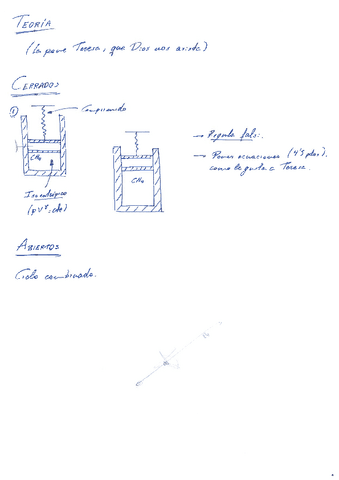 TEORÍA
(La pone Teresa, que Dios nos asista)
CERRADOS
1
Comprimendo
CH4
Isoentrópico
(pV^γ = cte)
CH4
→ Regula falsi.
→ Poner ecuaciones (4's plas),
como le gusta a Teresa.
ABIERTOS
Ciclo combinado.